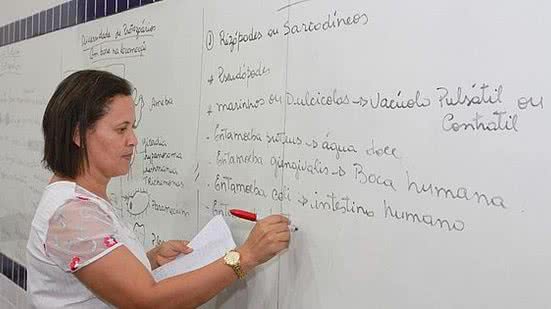 Diversidade de Protozoários
Com base na locomoção
Ameba
Giardia
Trypanosoma
Leishmania
Trichomonas
Paramecium
1) Rizópodes ou Sarcodíneos
* Pseudópodes
* marinhos ou Dulcícolas → Vacúolo Pulsátil ou
Contrátil
- Entamoeba → água doce
- Entamoeba gingivalis → Boca humana
- Entamoeba coli → intestino humano
- Enta